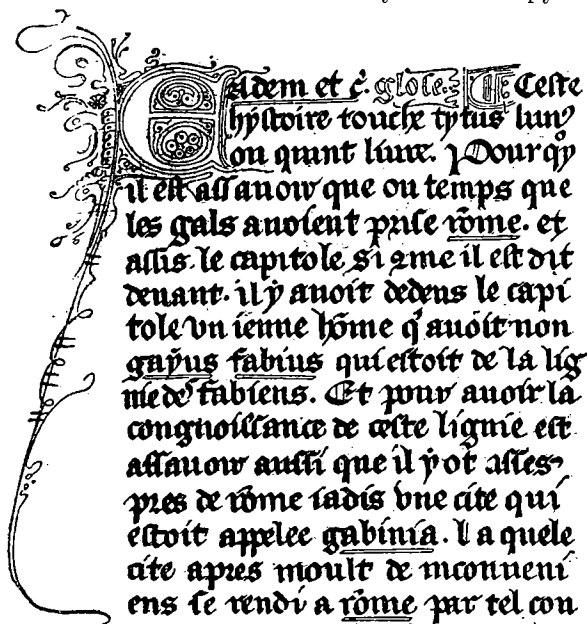 Eadem et c̄. glose. ¶ Ceste
hystoire touche tytus liuiꝰ
ou quint liure. Pour qͦy
il est assauoir que ou temps que
les gals auoient prise rōme. et
assis le capitole si ꝯme il est dit
deuant. il ẏ auoit dedens le capi
tole vn ienne hōme q̉ auoit non
gaẏus fabius qui estoit de la lig
nie des fabiens. Et pour auoir la
congnoissance de ceste lignie est
assauoir aussi que il ẏ ot asses
pres de rōme iadis vne cite qui
estoit appelee gabinia. La quele
cite apres moult de inconueni
ens se rendi a rōme par tel con